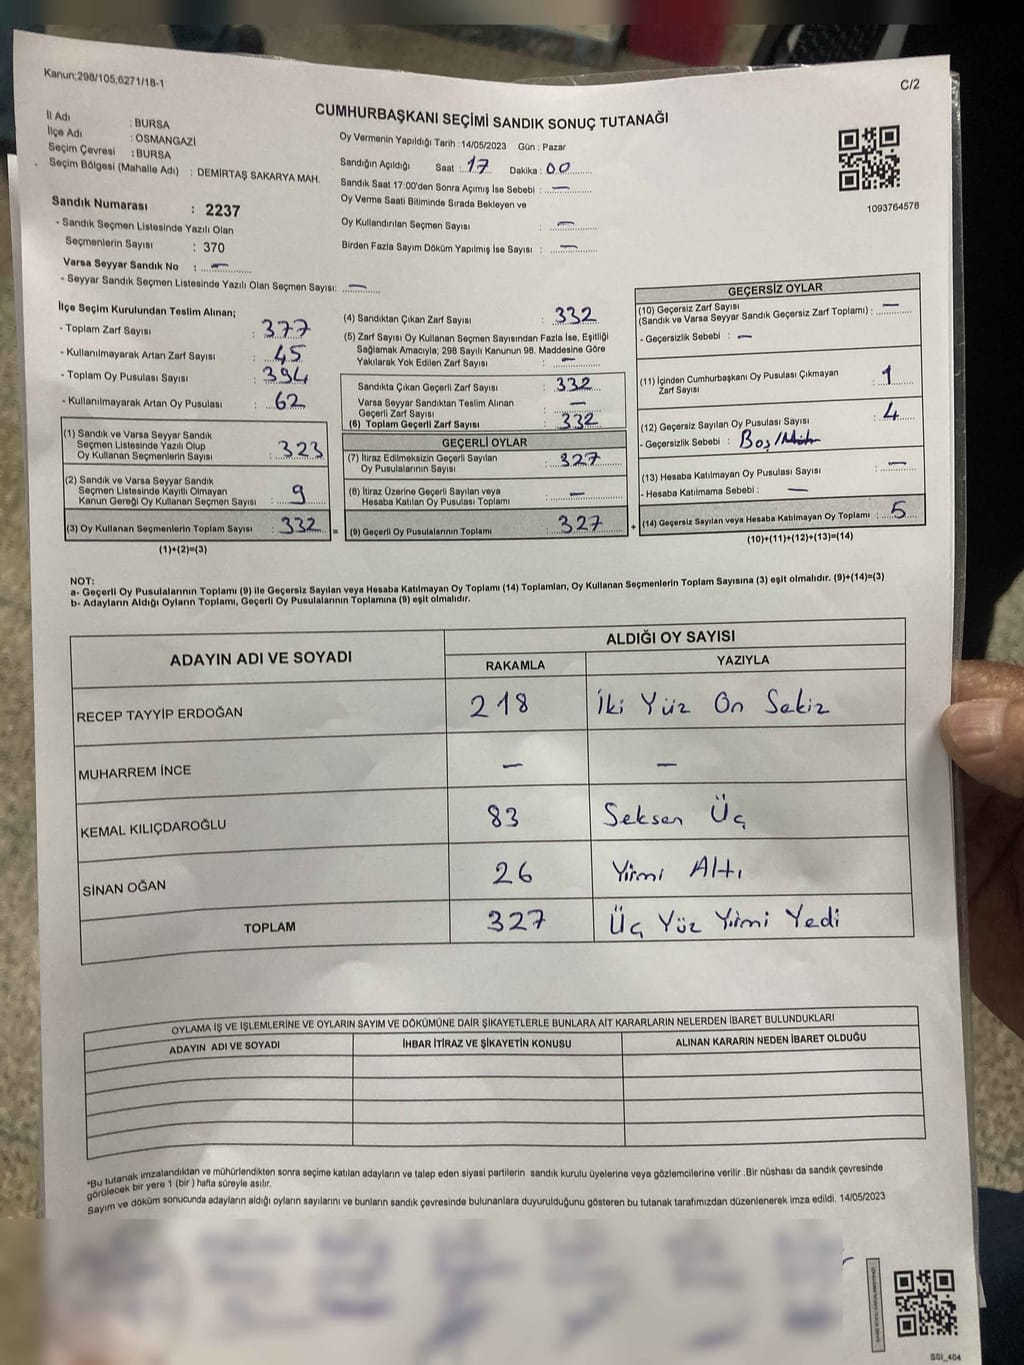 Kanun;298/105;6271/18-1
C/2
CUMHURBAŞKANI SEÇİMİ SANDIK SONUÇ TUTANAĞI
İl Adı : BURSA
İlçe Adı : OSMANGAZİ
Seçim Çevresi : BURSA
Seçim Bölgesi (Mahalle Adı) : DEMİRTAŞ SAKARYA MAH.
Oy Vermenin Yapıldığı Tarih : 14/05/2023 Gün : Pazar
Sandığın Açıldığı Saat : 17 Dakika : 00
Sandık Saat 17:00'den Sonra Açımış İse Sebebi : —
Oy Verme Saati Bitiminde Sırada Bekleyen ve
Oy Kullandırılan Seçmen Sayısı : —
Birden Fazla Sayım Döküm Yapılmış İse Sayısı : —
1093764578
Sandık Numarası : 2237
- Sandık Seçmen Listesinde Yazılı Olan
Seçmenlerin Sayısı : 370
Varsa Seyyar Sandık No : —
- Seyyar Sandık Seçmen Listesinde Yazılı Olan Seçmen Sayısı: —
İlçe Seçim Kurulundan Teslim Alınan;
- Toplam Zarf Sayısı : 377
- Kullanılmayarak Artan Zarf Sayısı : 45
- Toplam Oy Pusulası Sayısı : 394
- Kullanılmayarak Artan Oy Pusulası : 62
(1) Sandık ve Varsa Seyyar Sandık
Seçmen Listesinde Yazılı Olup
Oy Kullanan Seçmenlerin Sayısı : 323
(2) Sandık ve Varsa Seyyar Sandık
Seçmen Listesinde Kayıtlı Olmayan
Kanun Gereği Oy Kullanan Seçmen Sayısı : 9
(3) Oy Kullanan Seçmenlerin Toplam Sayısı : 332 =
(1)+(2)=(3)
(4) Sandıktan Çıkan Zarf Sayısı : 332
(5) Zarf Sayısı Oy Kullanan Seçmen Sayısından Fazla İse, Eşitliği
Sağlamak Amacıyla; 298 Sayılı Kanunun 98. Maddesine Göre
Yakılarak Yok Edilen Zarf Sayısı : —
Sandıkta Çıkan Geçerli Zarf Sayısı : 332
Varsa Seyyar Sandıktan Teslim Alınan
Geçerli Zarf Sayısı : —
(6) Toplam Geçerli Zarf Sayısı : 332
GEÇERLİ OYLAR
(7) İtiraz Edilmeksizin Geçerli Sayılan
Oy Pusulalarının Sayısı : 327
(8) İtiraz Üzerine Geçerli Sayılan veya
Hesaba Katılan Oy Pusulası Toplamı : —
(9) Geçerli Oy Pusulalarının Toplamı : 327 +
GEÇERSİZ OYLAR
(10) Geçersiz Zarf Sayısı
(Sandık ve Varsa Seyyar Sandık Geçersiz Zarf Toplamı) : —
- Geçersizlik Sebebi : —
(11) İçinden Cumhurbaşkanı Oy Pusulası Çıkmayan
Zarf Sayısı : 1
(12) Geçersiz Sayılan Oy Pusulası Sayısı : 4
- Geçersizlik Sebebi : Boş/
(13) Hesaba Katılmayan Oy Pusulası Sayısı : —
- Hesaba Katılmama Sebebi : —
(14) Geçersiz Sayılan veya Hesaba Katılmayan Oy Toplamı : 5
(10)+(11)+(12)+(13)=(14)
NOT:
a- Geçerli Oy Pusulalarının Toplamı (9) ile Geçersiz Sayılan veya Hesaba Katılmayan Oy Toplamı (14) Toplamları, Oy Kullanan Seçmenlerin Toplam Sayısına (3) eşit olmalıdır. (9)+(14)=(3)
b- Adayların Aldığı Oyların Toplamı, Geçerli Oy Pusulalarının Toplamına (9) eşit olmalıdır.
ADAYIN ADI VE SOYADI
ALDIĞI OY SAYISI
RAKAMLA YAZIYLA
RECEP TAYYİP ERDOĞAN 218 İki Yüz On Sekiz
MUHARREM İNCE — —
KEMAL KILIÇDAROĞLU 83 Seksen Üç
SİNAN OĞAN 26 Yirmi Altı
TOPLAM 327 Üç Yüz Yirmi Yedi
OYLAMA İŞ VE İŞLEMLERİNE VE OYLARIN SAYIM VE DÖKÜMÜNE DAİR ŞİKAYETLERLE BUNLARA AİT KARARLARIN NELERDEN İBARET BULUNDUKLARI
ADAYIN ADI VE SOYADI İHBAR İTİRAZ VE ŞİKAYETİN KONUSU ALINAN KARARIN NEDEN İBARET OLDUĞU
*Bu tutanak imzalandıktan ve mühürlendikten sonra seçime katılan adayların ve talep eden siyasi partilerin sandık kurulu üyelerine veya gözlemcilerine verilir .Bir nüshası da sandık çevresinde
görülecek bir yere 1 (bir ) hafta süreyle asılır.
Sayım ve döküm sonucunda adayların aldığı oyların sayılarını ve bunların sandık çevresinde bulunanlara duyurulduğunu gösteren bu tutanak tarafımızdan düzenlenerek imza edildi. 14/05/2023
SSI_404